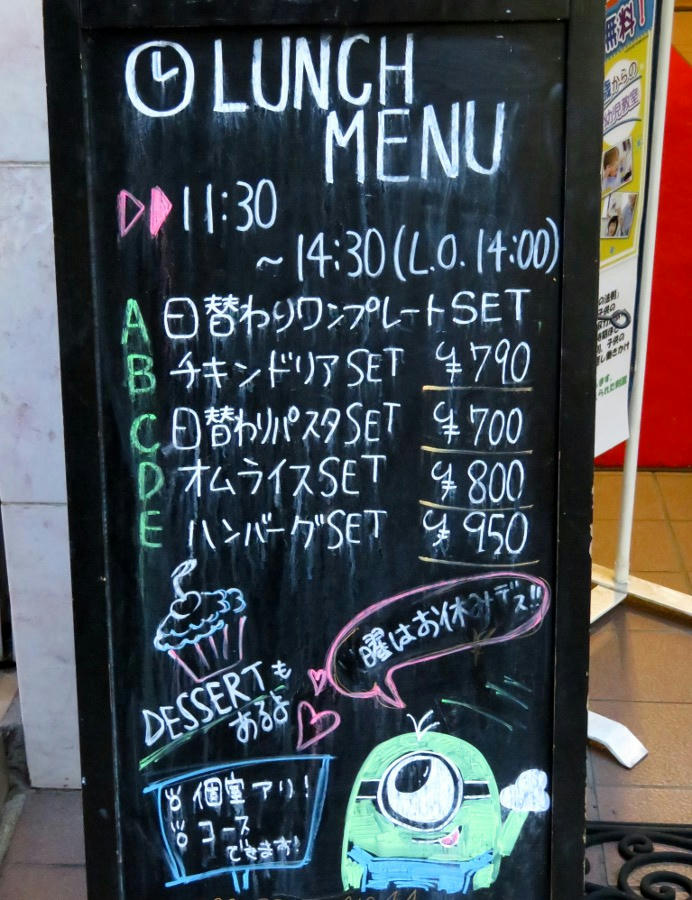 LUNCH
MENU
11:30
~14:30(L.O. 14:00)
A 日替わりワンプレートSET
B チキンドリアSET ¥790
C 日替わりパスタSET ¥700
D オムライスSET ¥800
E ハンバーグSET ¥950
曜はお休みデス!!
DESSERTも
あるよ
個室アリ!
コース
できます!
無料!
からの
幼児教室